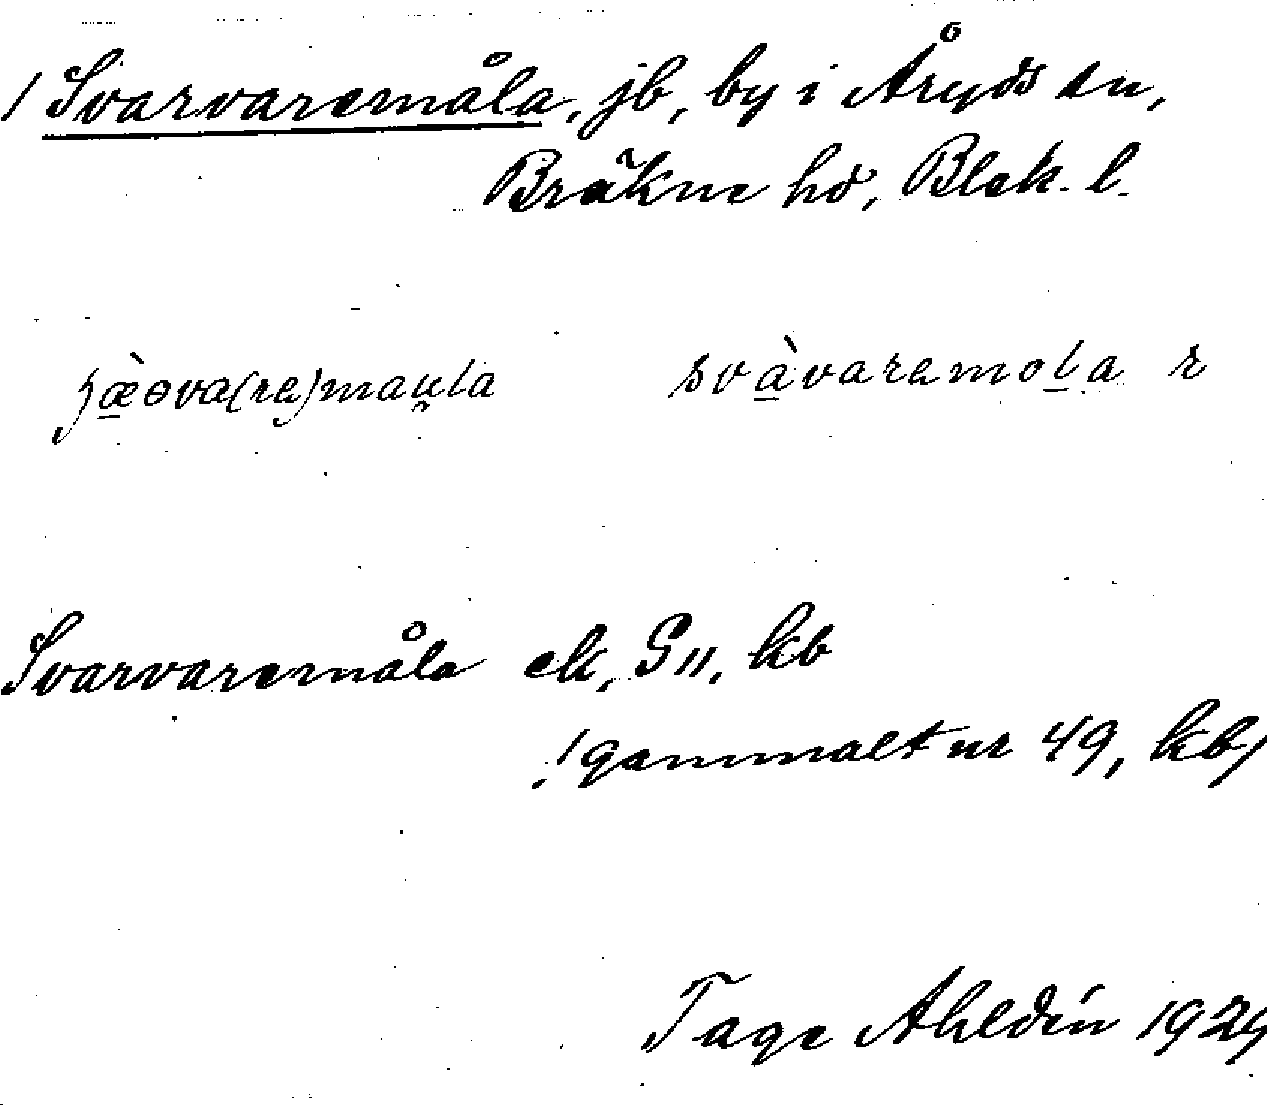 1 Svarvaremåla, jb, by i Åryds sn,
Bräkne hd, Blek. l.
svàvaremola r
Svarvaremåla ek, S 11, kb
/gammalt nr 49, kb/
Tage Ahldin 1929